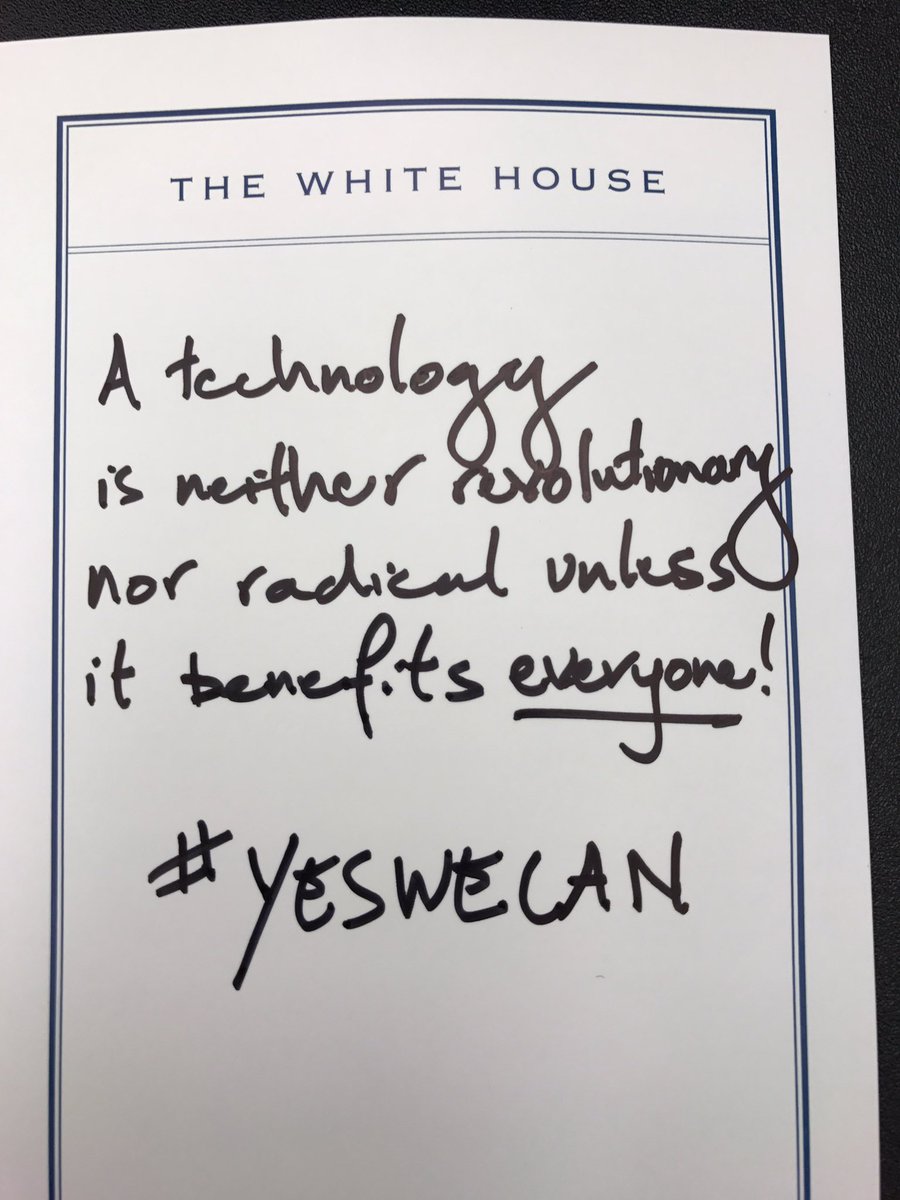 THE WHITE HOUSE
A technology
is neither revolutionary
nor radical unless
it benefits everyone!
#YESWECAN